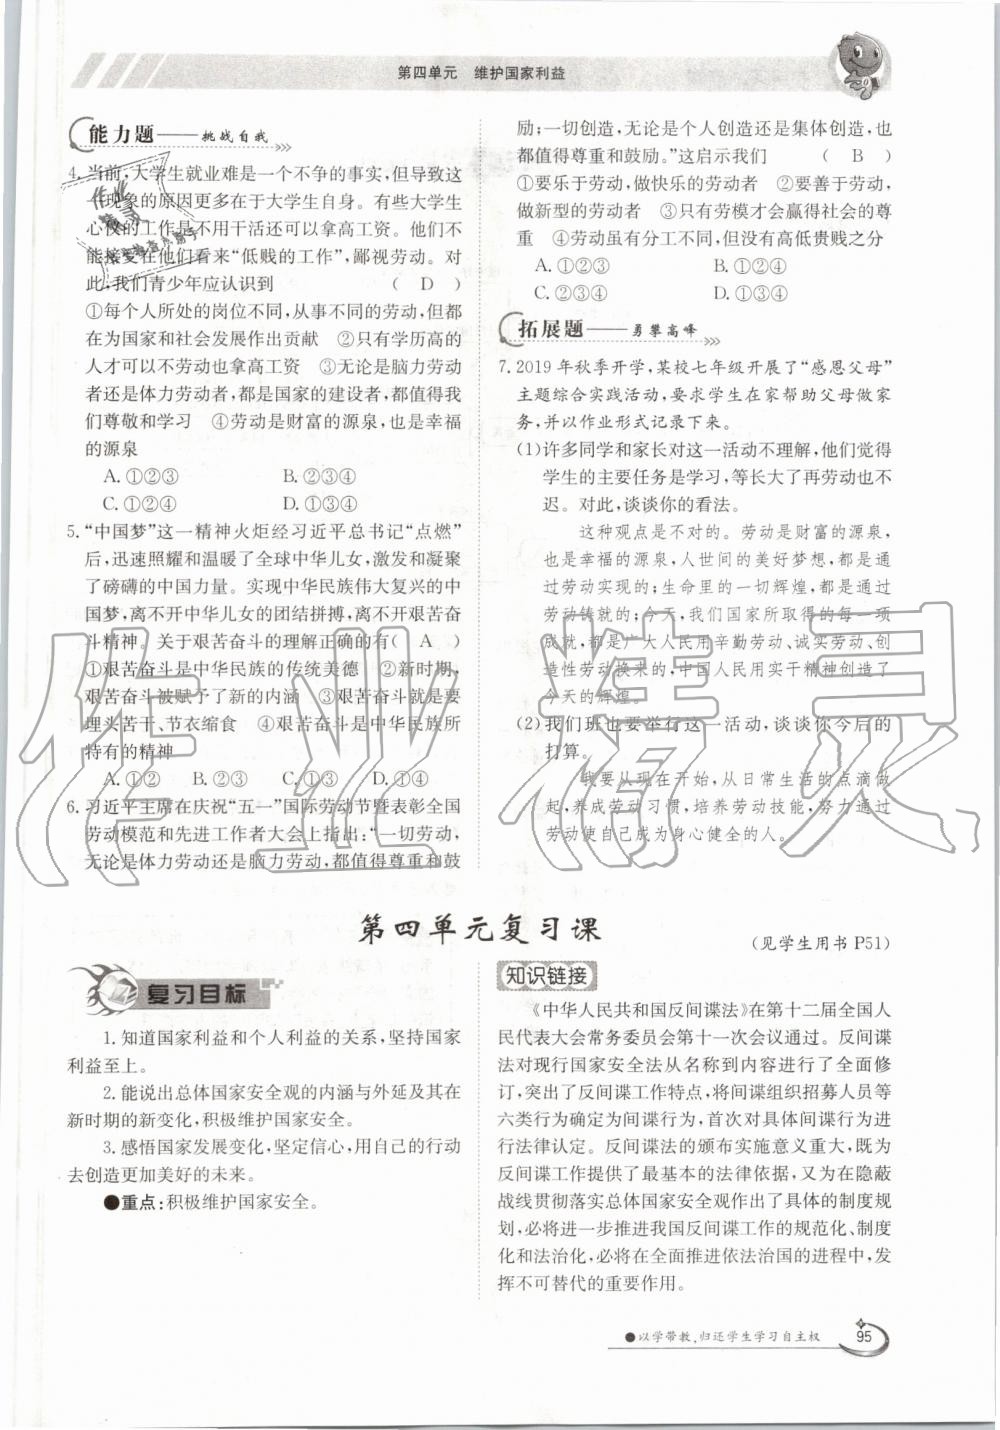 第四单元　维护国家利益
能力题——挑战自我
4. 当前,大学生就业难是一个不争的事实,但导致这
一现象的原因更多在于大学生自身。有些大学生
心仪的工作是不用干活还可以拿高工资。他们不
能接受在他们看来“低贱的工作”,鄙视劳动。对
此,我们青少年应认识到　（ D ）
①每个人所处的岗位不同,从事不同的劳动,但都
在为国家和社会发展作出贡献　②只有学历高的
人才可以不劳动也拿高工资　③无论是脑力劳动
者还是体力劳动者,都是国家的建设者,都值得我
们尊敬和学习　④劳动是财富的源泉,也是幸福
的源泉
A. ①②③　B. ②③④
C. ①②④　D. ①③④
5. “中国梦”这一精神火炬经习近平总书记“点燃”
后,迅速照耀和温暖了全球中华儿女,激发和凝聚
了磅礴的中国力量。实现中华民族伟大复兴的中
国梦,离不开中华儿女的团结拼搏,离不开艰苦奋
斗精神。关于艰苦奋斗的理解正确的有（ A ）
①艰苦奋斗是中华民族的传统美德　②新时期,
艰苦奋斗被赋予了新的内涵　③艰苦奋斗就是要
埋头苦干、节衣缩食　④艰苦奋斗是中华民族所
特有的精神
A. ①②　B. ②③　C. ①③④　D. ②③④
6. 习近平主席在庆祝“五一”国际劳动节暨表彰全国
劳动模范和先进工作者大会上指出:“一切劳动,
无论是体力劳动还是脑力劳动,都值得尊重和鼓
励;一切创造,无论是个人创造还是集体创造,也
都值得尊重和鼓励。”这启示我们　（ B ）
①要乐于劳动,做快乐的劳动者　②要善于劳动,
做新型的劳动者　③只有劳模才会赢得社会的尊
重　④劳动虽有分工不同,但无高低贵贱之分
A. ①②③　B. ①②④
C. ②③④　D. ①③④
拓展题——勇攀高峰
7. 2019年秋季开学,某校七年级开展了“感恩父母”
主题综合实践活动,要求学生在家帮助父母做家
务,并以作业形式记录下来。
(1)许多同学和家长对这一活动不理解,他们觉得
学生的主要任务是学习,等长大了再劳动也不
迟。对此,谈谈你的看法。
这种观点是不对的。劳动是财富的源泉,
也是幸福的源泉,人世间的美好梦想,都是通
过劳动实现的;生命里的一切辉煌,都是通过
劳动铸就的;今天,我们国家所取得的每一项
成就,都是广大人民用辛勤劳动、诚实劳动、创
造性劳动换来的,中国人民用实干精神创造了
今天的辉煌。
(2)我们班也要举行这一活动,谈谈你今后的
打算。
我要从现在开始,从日常生活的点滴做
起,养成劳动习惯,培养劳动技能,努力通过
劳动使自己成为身心健全的人。
第四单元复习课
(见学生用书 P51)
复习目标
1. 知道国家利益和个人利益的关系,坚持国家
利益至上。
2. 能说出总体国家安全观的内涵与外延及其在
新时期的新变化,积极维护国家安全。
3. 感悟国家发展变化,坚定信心,用自己的行动
去创造更加美好的未来。
●重点:积极维护国家安全。
知识链接
《中华人民共和国反间谍法》在第十二届全国人
民代表大会常务委员会第十一次会议通过。反间谍
法对现行国家安全法从名称到内容进行了全面修
订,突出了反间谍工作特点,将间谍组织招募人员等
六类行为确定为间谍行为,首次对具体间谍行为进
行法律认定。反间谍法的颁布实施意义重大,既为
反间谍工作提供了最基本的法律依据,又为在隐蔽
战线贯彻落实总体国家安全观作出了具体的制度规
划,必将进一步推进我国反间谍工作的规范化、制度
化和法治化,必将在全面推进依法治国的进程中,发
挥不可替代的重要作用。
●以学带教,归还学生学习自主权
95
作业精灵